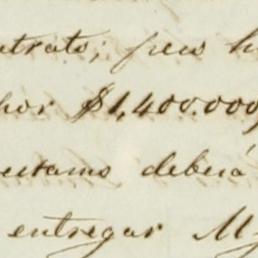 ntrato; pues h
por $1,400.000,
restamo deberá
entregar M